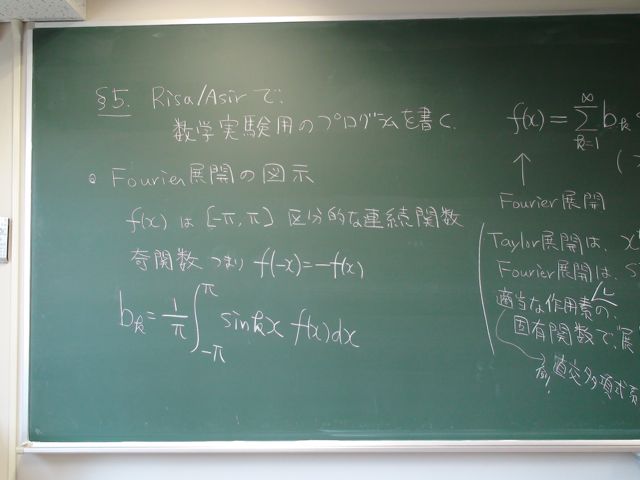 §5. Risa/Asir で.
数学実験用のプログラムを書く.
Fourier展開の図示
f(x) は [-π, π] 区分的な連続関数
奇関数 つまり f(-x)=-f(x)
b_k = 1/π ∫_{-π}^{π} sin kx f(x)dx
f(x) = Σ_{k=1}^{∞} b_k
↑
Fourier展開
Taylor展開は, x
Fourier展開は, s
適当な作用素の,
固有関数で,展
直交多項式